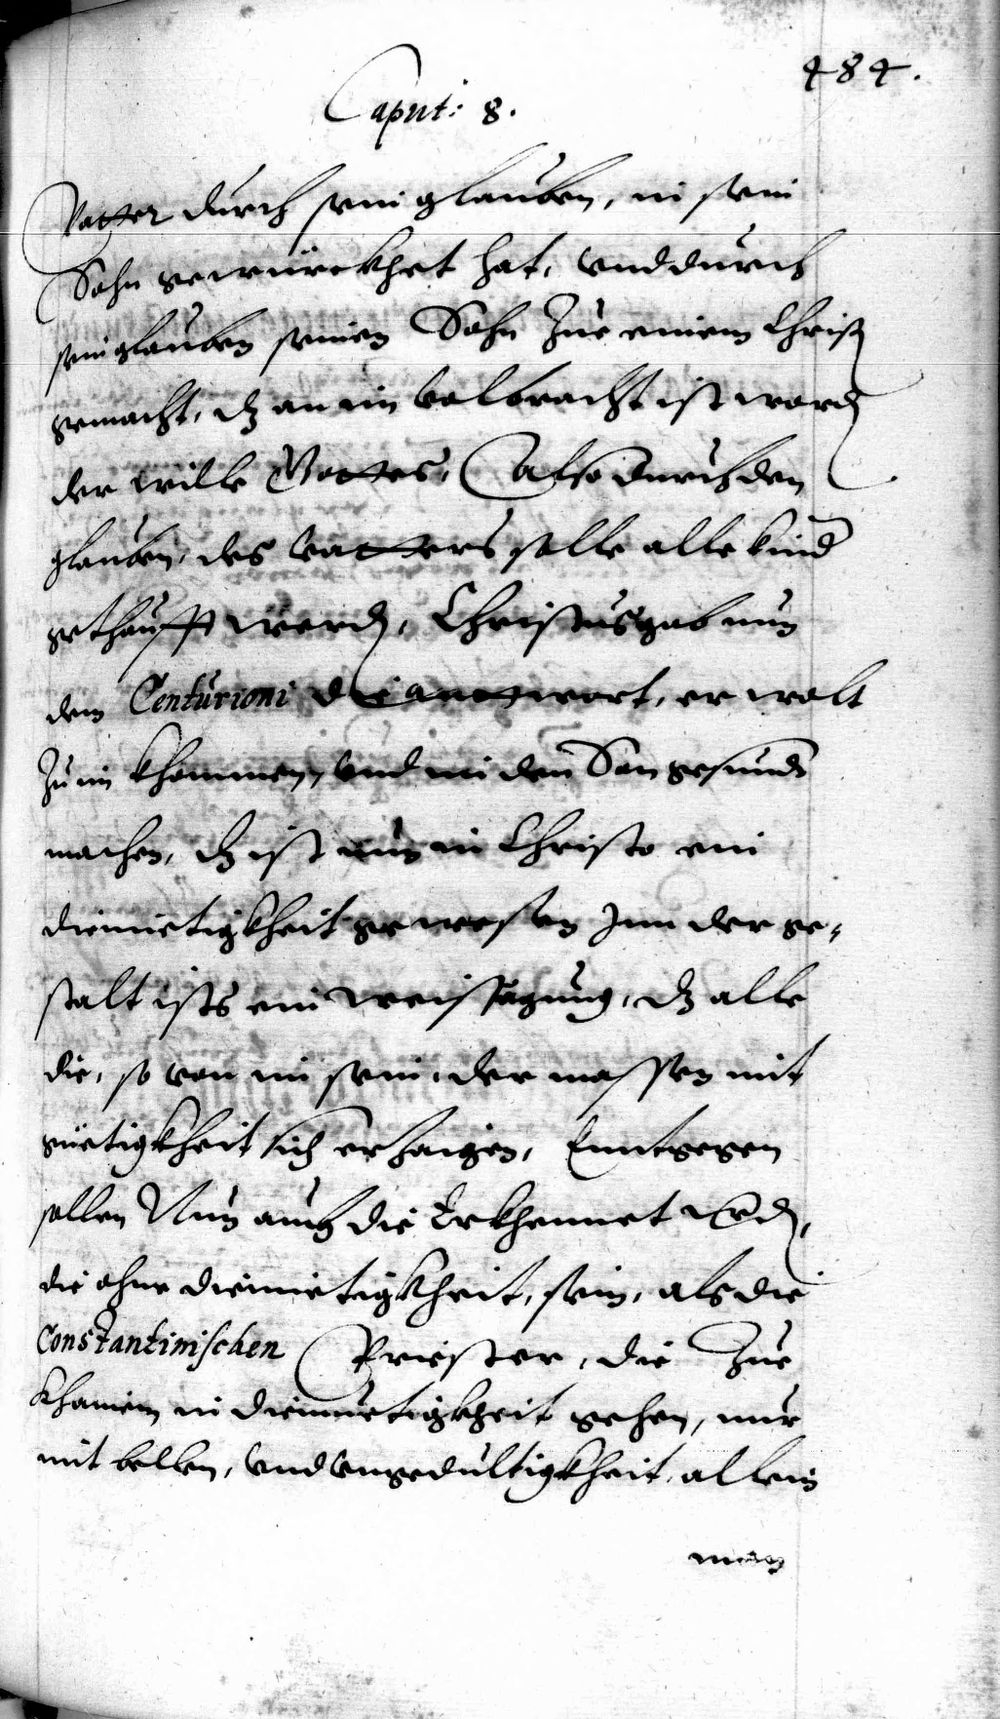 484.
Caput: 8.
Vatter durch sein glauben, in sein
Sohn gewürckhet hat, vnd durch
sein glauben seinen Sohn Zue einem Christ
gemacht, dz an im volbracht ist word
der wille Gottes, Also durch den
glauben, des Vatters solle alle kind
gethaufft werd, Christus gab nun
dem Centurioni die anttwort, er wolt
Zu im khommen, vnd im den Son gesundt
machen, dz ist nun in Christo ein
diemietigkheit gewesen Inn der ge-
stalt ists ein weissagung, dz alle
die, so von im sein, der massen mit
güetigkheit sich erzaigen, Enntgegen
sollen Nun auch die Erkhennet werd,
die ohne diemietigkheit, sein, als die
Constantinischen Priester, die Zue
khainem in diemüetigkheit gehen, nur
mit bellen, vnd vngedültigkheit, allein